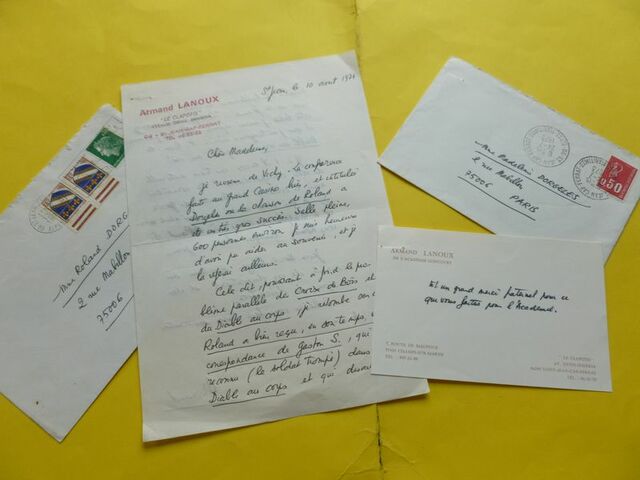 Armand LANOUX
"LE CLAPOTIS"
St Jean, le 10 août 1974
Chère Madeleine,
je reviens de Vichy. La conférence
faite au grand Casino hier, et intitulée
Dorgelès ou la chanson de Roland a
eu un très gros succès. Salle pleine,
600 personnes environ. Je suis heureux
d'avoir pu aider au souvenir et je
la referai ailleurs.
Cela dit, poursuivant à fond le pro-
blème parallèle de Croix de Bois et
du Diable au corps, je retombe sur
Roland a bien reçu, en son temps, une
correspondance de Gaston S., qui
reconnu (le soldat trompé) dans
Diable au corps et qui
Mme Roland DORG
2 rue Mabillon
75006
Mme Madeleine DORGELÈS
2 rue Mabillon
75006
PARIS
0,50
ARMAND LANOUX
DE L'ACADÉMIE GONCOURT
Et un grand merci fraternel pour ce
que vous faites pour l'Académie.
"LE CLAPOTIS"